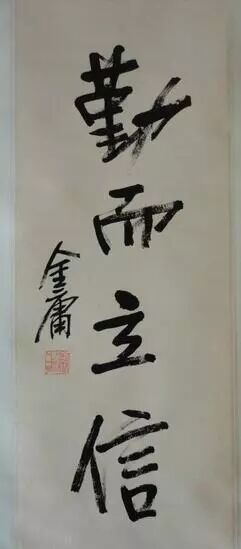 勤而立信
金庸